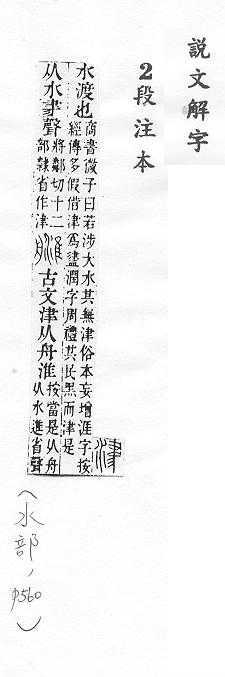 說文解字
2段注本
津
水渡也
商書微子曰若涉大水其無津俗本妄增涯字按
經傳多假借津爲𧗁潤字周禮其民黑而津是
从水𦘔聲
將鄰切十二
部隸省作津
古文津从舟淮
按當是从舟
从水進省聲
(水部,p560)